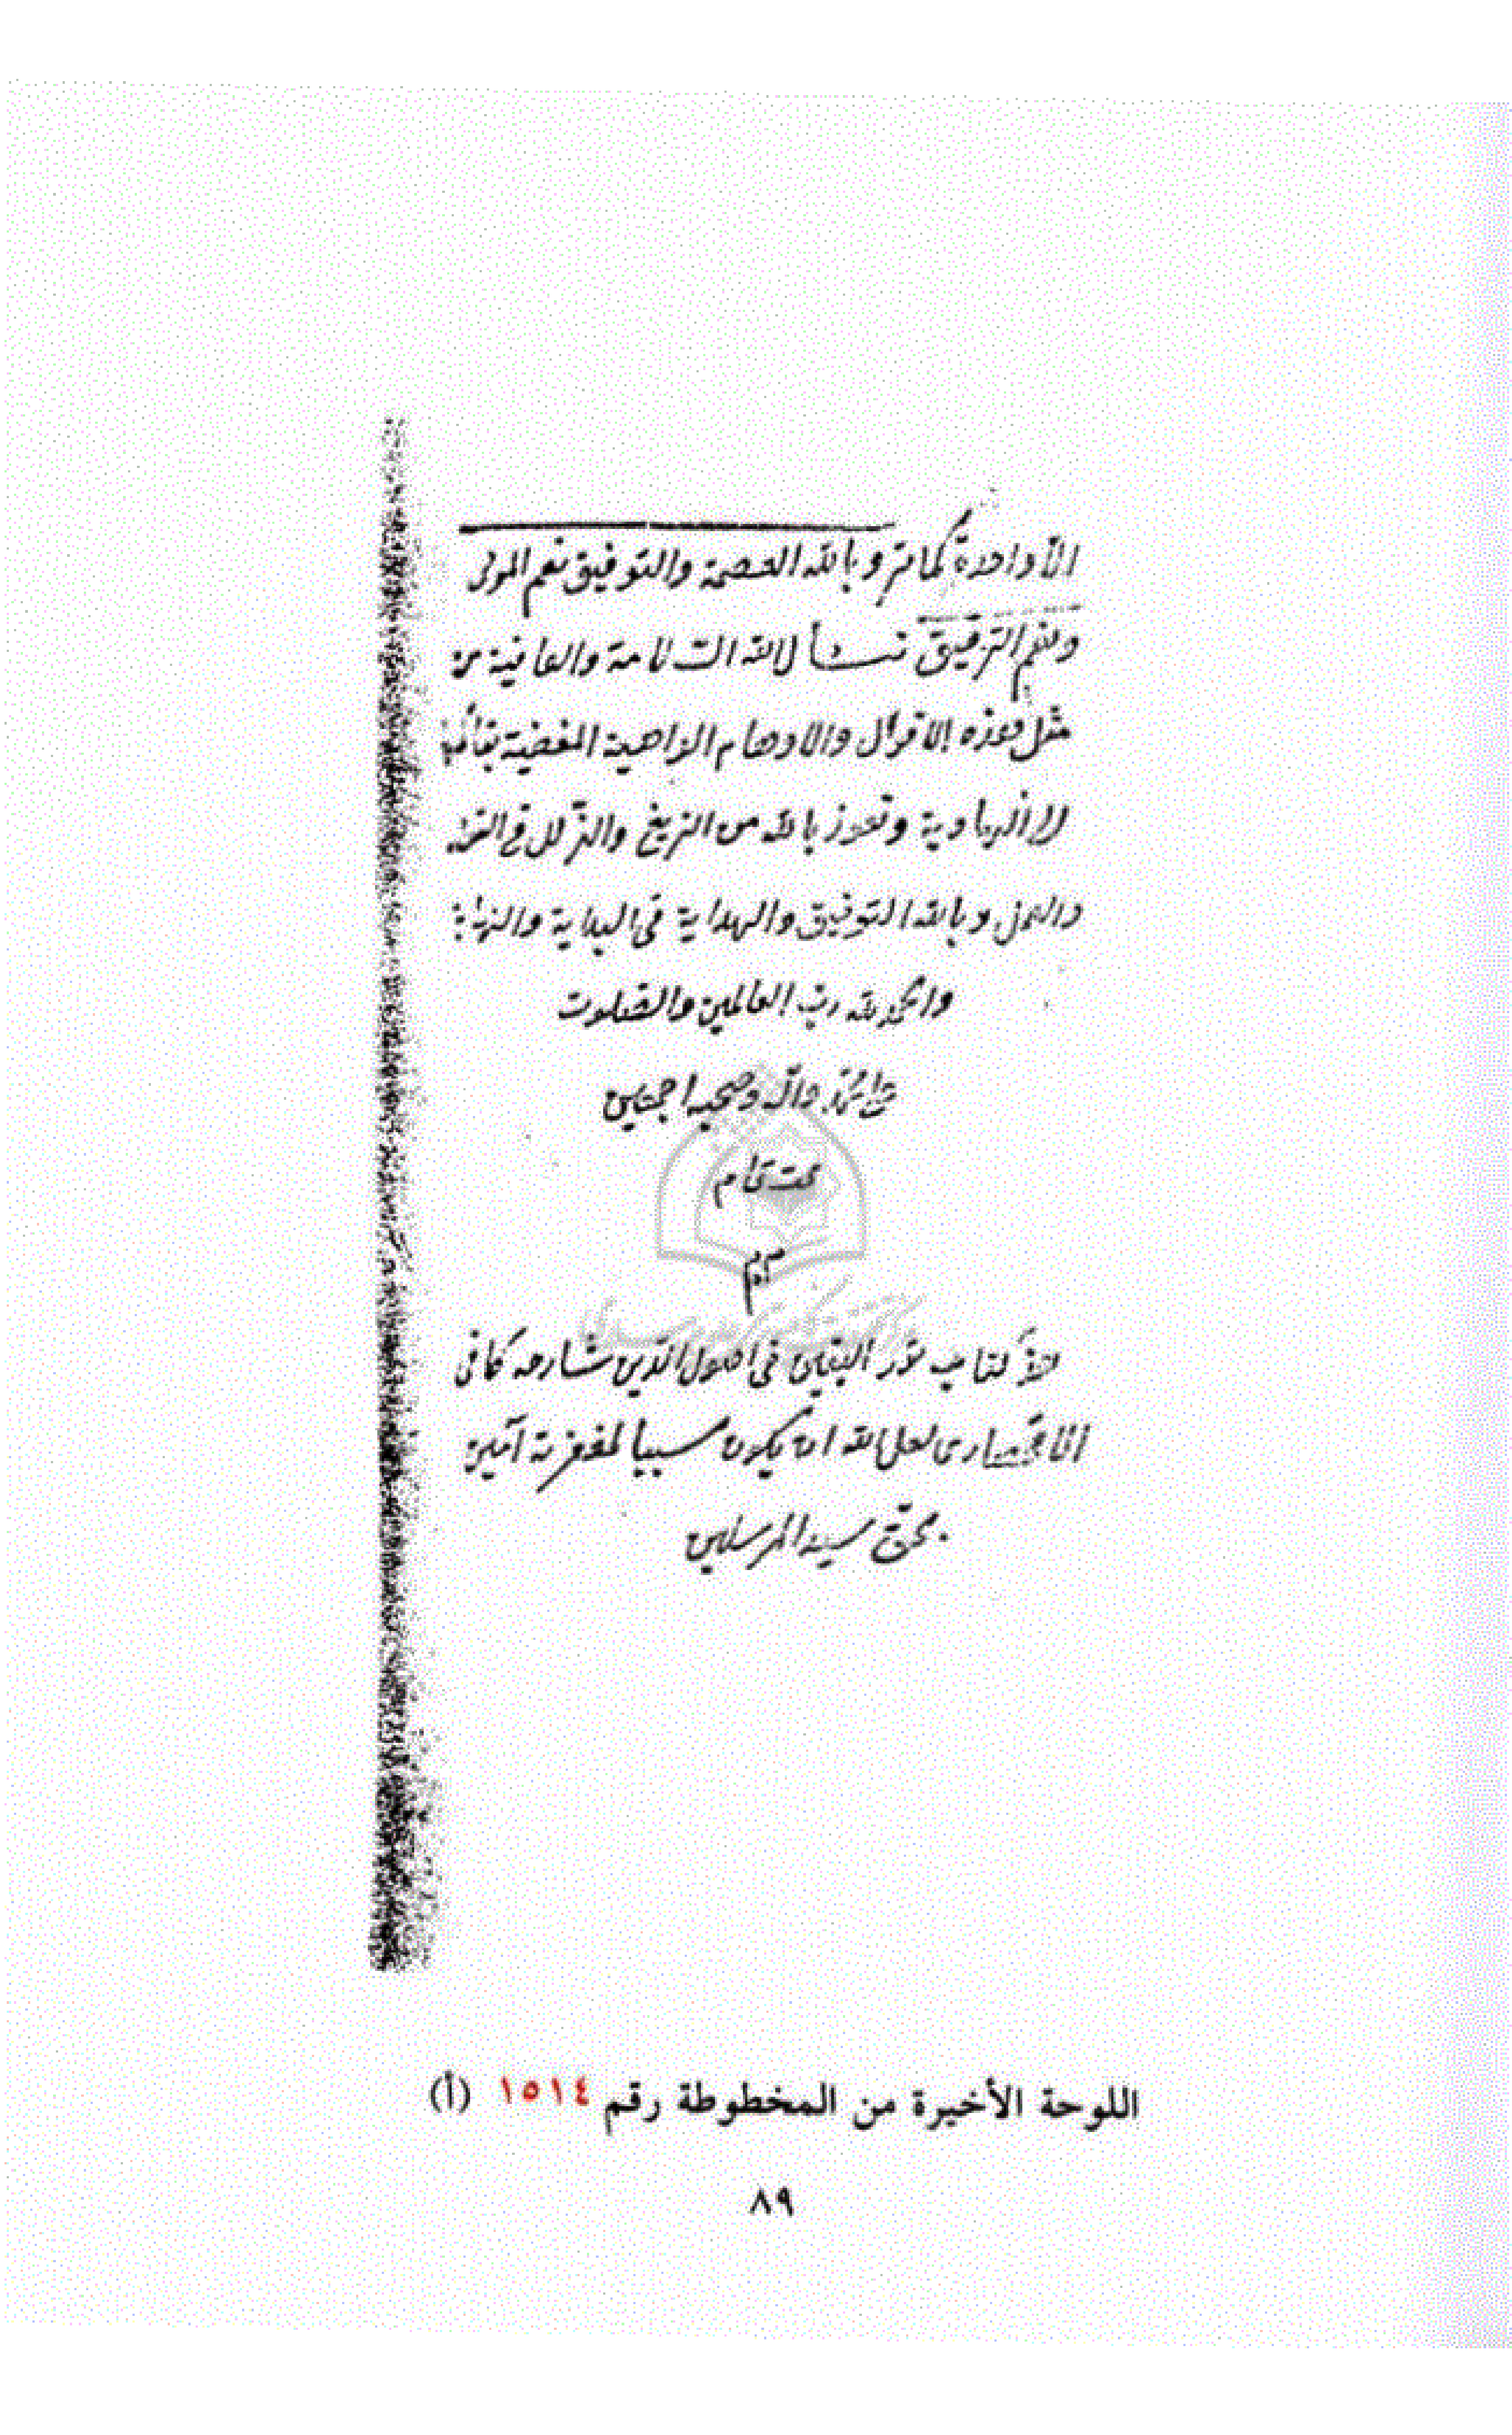 الا واحدة كما مر وبالله العصمة والتوفيق نعم المولى
ونعم الرفيق نسأل الله السلامة والعافية من
مثل هذه الاقوال والاوهام الواهية المفضية بقائلها
الهاوية ونعوذ بالله من الزيغ والزلل في القول
والعمل وبالله التوفيق والهداية في البداية والنهاية
والحمد لله رب العالمين والصلوت
على محمد وآله وصحبه اجمعين
تمت تمام
م
هذ كتاب نور اليقين في اصول الدين شارحه كافى
الاقحصارى لعل الله ان يكون سببا لمغفرته آمين
بحرمة سيد المرسلين
اللوحة الأخيرة من المخطوطة رقم ١٥١٤ (أ)
٨٩